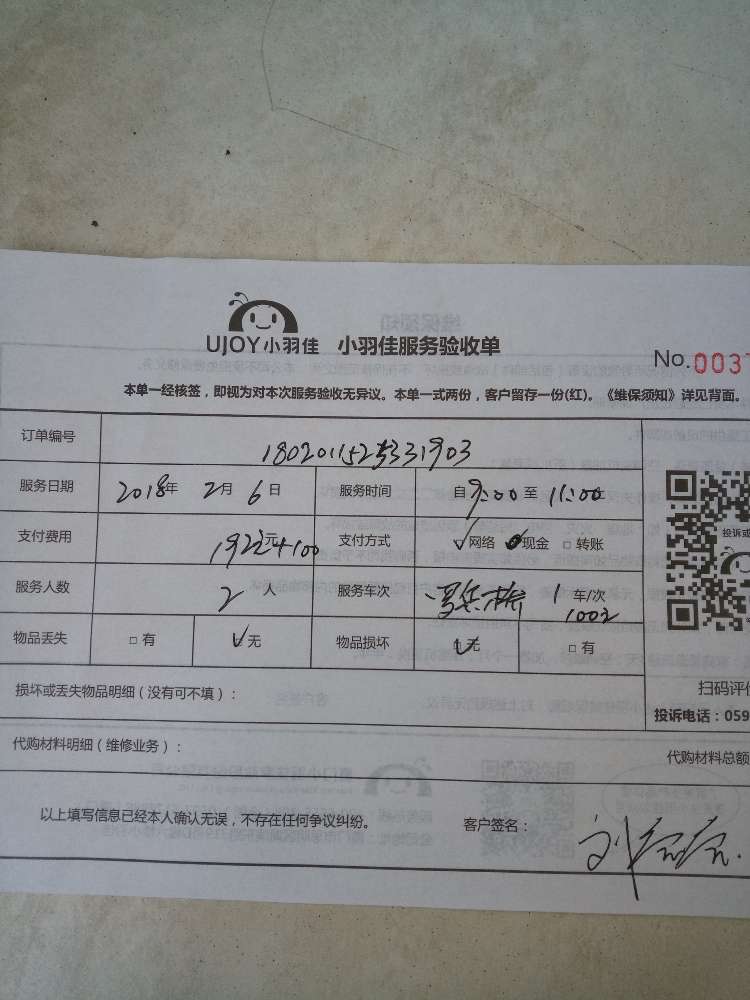 UJOY小羽佳 小羽佳服务验收单
No.0037
本单一经核签，即视为对本次服务验收无异议。本单一式两份，客户留存一份(红)。《维保须知》详见背面。
订单编号
服务日期 2018年 2月 6日 服务时间 自9:00至11:00
支付费用 192元+100 支付方式 ☑网络 现金 □转账
服务人数 2人 服务车次 1 车/次
100元
物品丢失 □有 ☑无 物品损坏 ☑无 □有
投诉或
扫码评价
投诉电话：059
损坏或丢失物品明细（没有可不填）：
代购材料明细（维修业务）： 代购材料总额
以上填写信息已经本人确认无误，不存在任何争议纠纷。 客户签名：